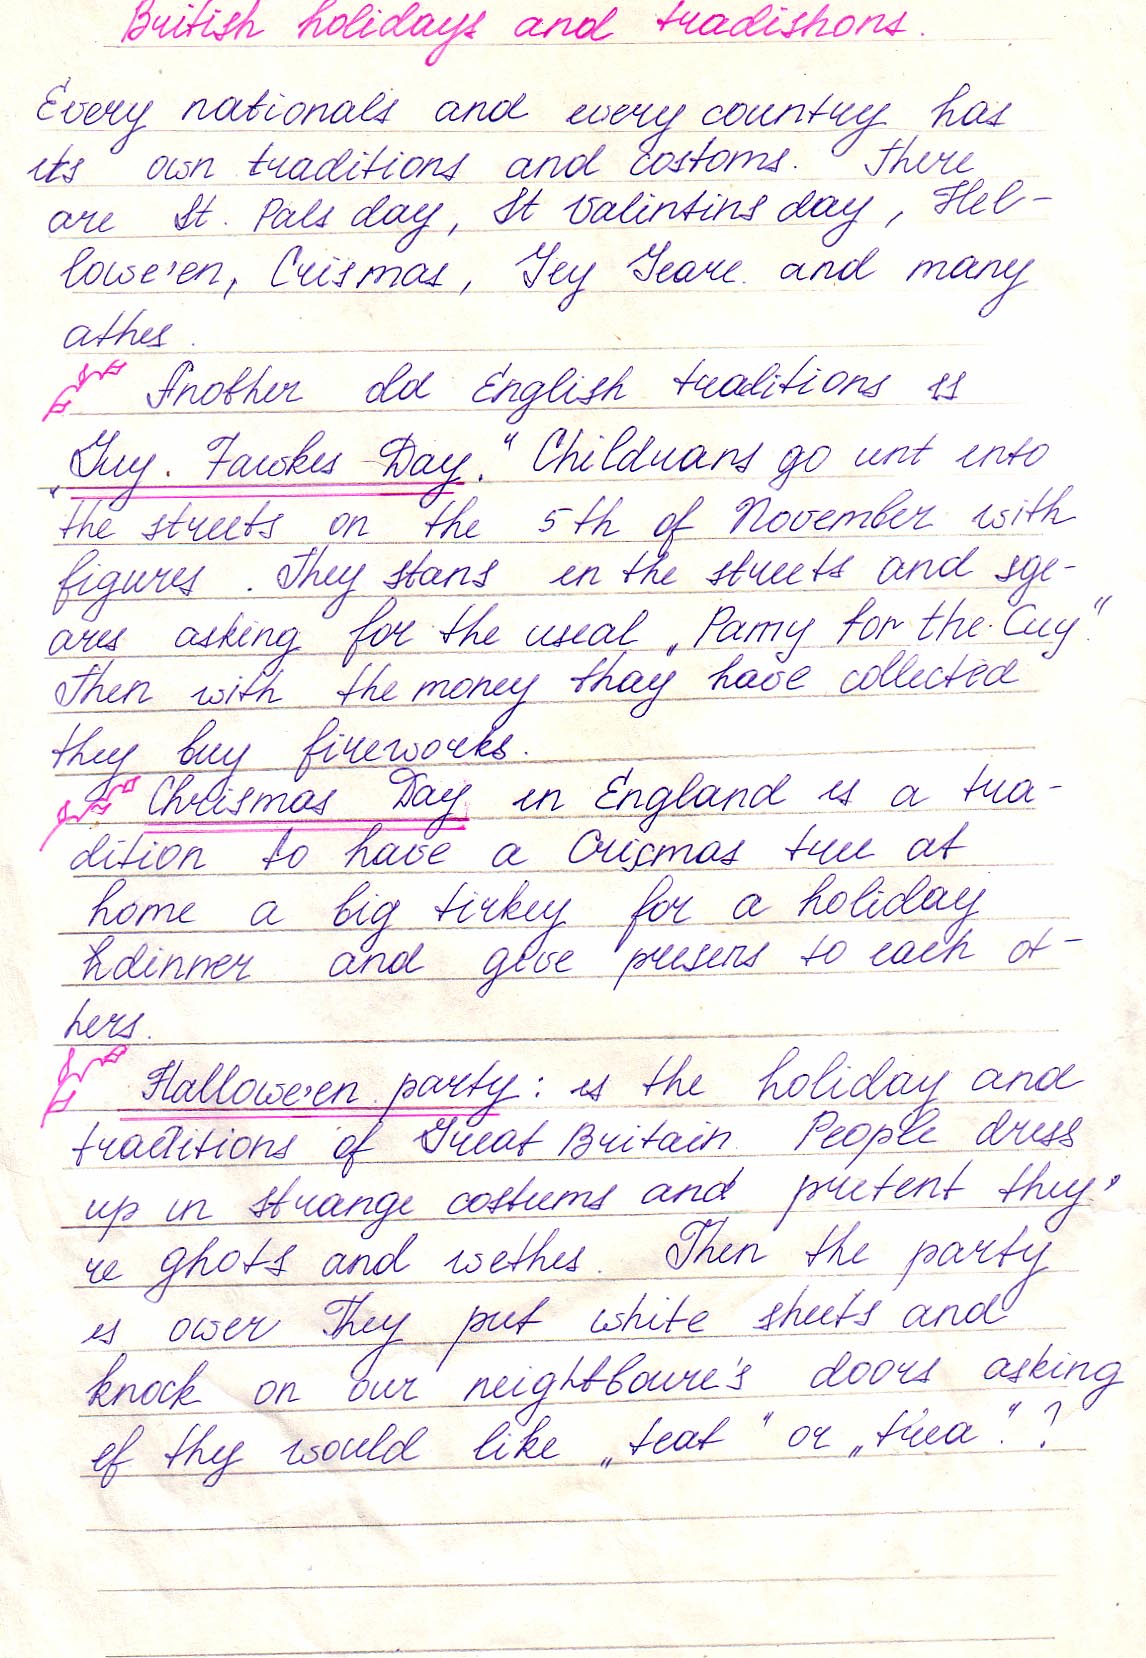 British holidays and tradishons.
Every nationals and every country has
its own traditions and costoms. There
are St. Pals day, St Valintins day, Hel-
lowe'en, Crismas, Yey Yeare. and many
athes.
Another old English traditions is
„Guy. Fawkes Day." Childuans go unt into
the streets on the 5th of November with
figures. They stans in the streets and sge-
ares asking for the useal „Pamy for the Cuy."
Then with the money thay have collected
they buy fireworks.
Chrismas Day in England is a tra-
dition to have a Crismas tree at
home a big tirkey for a holiday
hdinner and give presens to each ot-
hers.
Hallowe'en party: is the holiday and
traditions of Great Britain. People dress
up in strange costums and pretent they'
re ghots and wethes. Then the party
is ower They put white sheets and
knock on our neightboure's doors asking
ef thy would like „teat" or „trea"?